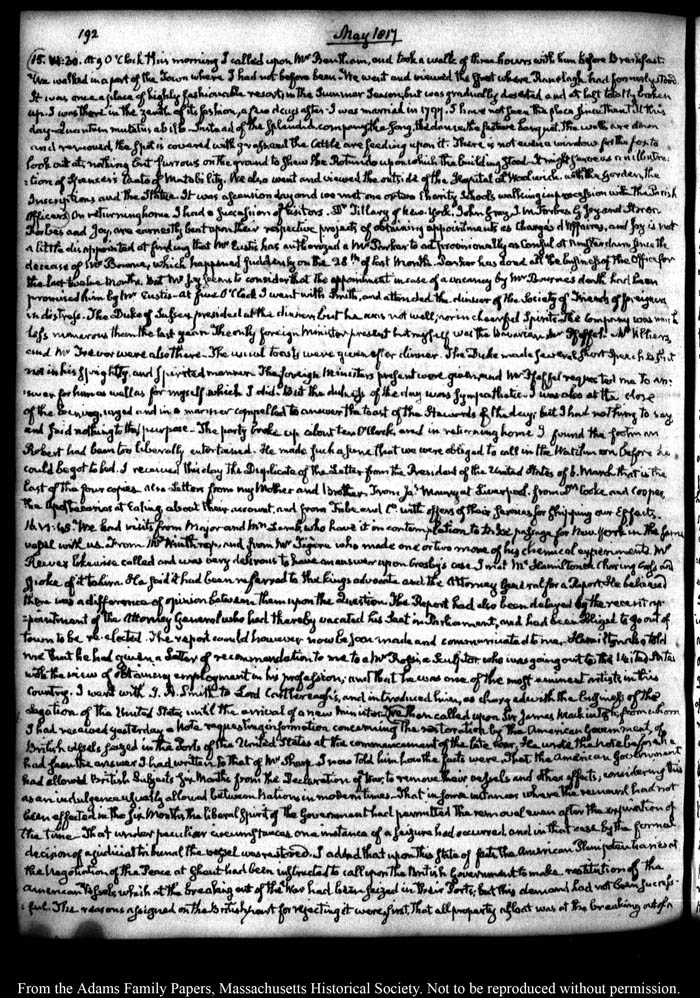 192
May 1817
15. VI:30. At 9 O'Clock this morning I called upon Mr Bentham, and took a walk of three hours with him before Breakfast.
We walked in a part of the Town where I had not before been. We went and viewed the spot where Ranelagh had formerly stood
It was once a place of highly fashionable resort, in the Summer Season, but was gradually deserted and at last totally broken
up. I was there in the zenith of its fashion, a few days after I was married in 1797. I have not seen the place since then till this
day. Quantum mutatus ab illo. Instead of the Splendid company, the Song, the dance, the festive banquet, The walls are down
and removed, the Spot is covered with grass and the Cattle are feeding upon it. There is not even a window for the fox to
look out at; nothing but furrows on the ground to shew the Rotunda upon which the building stood. It might serve as an illustra-
:tion of Spencer's Canto of Mutability. We also went and viewed the outside of the Hospital at Woolwich, with the Garden, the
Inscriptions and the Statue. It was ascension day and we met one or two Charity Schools walking in procession with the Parish
Officers. On returning home I had a succession of visitors. Dr Tillary of New-York, John Gray, J. M. Forbes, G. Joy and Storer.
Forbes and Joy, are earnestly bent upon their respective projects of obtaining appointments as Chargé d'Affaires, and Joy is not
a little disappointed at finding that Mr Eustis has authorized a Mr Parker to act provisionally as Consul at Amsterdam since the
decease of Mr Bourne, which happened suddenly on the 28th of last Month. Parker has done all the business of the Office for
the last twelve Months. But Mr Joy seems to consider that the appointment in case of a vacancy by Mr Bourne's death had been
promised him by Mr Eustis. At five O'Clock I went with Smith, and attended the dinner of the Society of Friends of foreigners
in distress. The Duke of Sussex presided at the dinner, but he was not well, nor in cheerful Spirits. The Company was much
less numerous than the last year. The only foreign Minister present but myself was the Bavarian, Mr Pfeffel. Mr Villiers,
and Mr Trevor were also there. The usual toasts were given after dinner. The Duke made several short speeches, but
not in his sprightly, and spirited manner. The foreign Ministers present were given, and Mr Pfeffel requested me to an-
:swer for him as well as for myself which I did. But the dulness of the day was sympathetic. I was also at the close
of the evening, urged and in a manner compelled to answer the toast of the Stewards of the day; but I had nothing to say
and said nothing to the purpose. The party broke up about ten O'Clock, and in returning home I found the footman
Robert had been too liberally entertained. He made such a fume that we were obliged to call in the Watchman before he
could be got to bed. I received this day the Duplicate of the Letter from the President of the United States of 6. March. that is the
last of the four copies. also Letters from my Mother and brother. From Jas Maury at Liverpool, from Drs Cooke and Cooper,
the apothecaries at Ealing about their account, and from Tabe and Co with offers of their services for shipping our Effects.
16. VI:45. We had visits from Major and Mrs Lamb, who have it on contemplation, to take passage for New York in the same
vessel with us. From Mr Winthrop, and from Mr Tigere who made one or two more of his chemical experiments. Mr
Reeves likewise called and was very desirous to have an answer upon Crosby's case. I met Mr Hamilton at Charing Cross and
spoke of it to him. He said it had been referred to the kings advocate and the Attorney General for a Report. He believed
there was a difference of opinion between them upon the Question. The Report had also been delayed by the recent ap-
:pointment of the Attorney General who had thereby vacated his Seat in Parliament, and had been obliged to go out of
town to be re-elected. The report would however now be soon made and communicated to me. Hamilton also told
me that he had given a Letter of recommendation to me to a Mr Rossi, a Sculptor who was going out to the United States
with the view of obtaining employment in his profession; and that he was one of the most eminent artists in this
Country. I went with J. A. Smith to Lord Castlereagh's, and introduced him, as charged with the business of the
legation of the United States, until the arrival of a new Minister. We then called upon Sir James Mackintosh, from whom
I had received yesterday a Note requesting information concerning the restoration by the American Government, of
British vessels seized in the Ports of the United States at the commencement of the late war. He wrote the note before he
had seen the answer I had written to that of Mr Sharp. I now told him how the facts were. That the American Government
had allowed British Subjects Six Months from the Declaration of War, to remove their vessels and other effects, considering this
as an indulgence usually allowed between Nations in modern times. That in some instances where the removal had not
been effected in the Six Months, the liberal Spirit of the Government had permitted the removal even after the expiration of
the time. That under peculiar circumstances one instance of a seizure had occurred, and in that case by the formal
decision of a judicial tribunal the vessel was restored. I added that upon this State of facts the American Plenipotentiaries at
the Negotiation of the Peace at Ghent had been instructed to call upon the British Government to make restitution of the
American Vessels which at the breaking out of the War had been seized in their Ports; but this demand had not been success-
:ful. The reasons assigned on the British part for rejecting it were, first, That all property afloat was at the breaking out of a
From the Adams Family Papers, Massachusetts Historical Society. Not to be reproduced without permission.